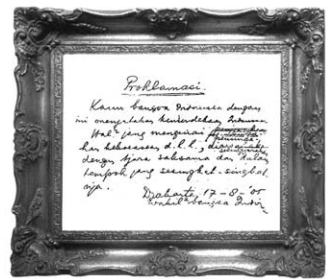 Proklamasi.
Kami bangsa Indonesia dengan
ini menjatakan kemerdekaan Indonesia.
Hal² jang mengenai
kekoeasaan d.l.l., diselenggarakan
dengan tjara saksama dan dalam
tempoh jang sesingkat-singkat
nja.
Djakarta, 17 - 8 - '05
Wakil² bangsa Indonesia